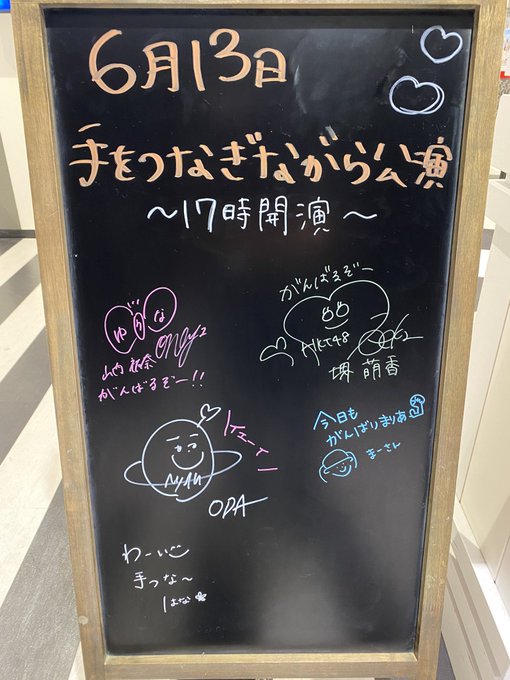 6月13日
手をつなぎながら公演
～17時開演～
がんばるぞー
ゆうな
山内祐奈
がんばるぞー!!
HKT48
堺萌香
イェーイ
ODA
今日も
がんばりまりあ
まーさん
わーい
手つな～
はな